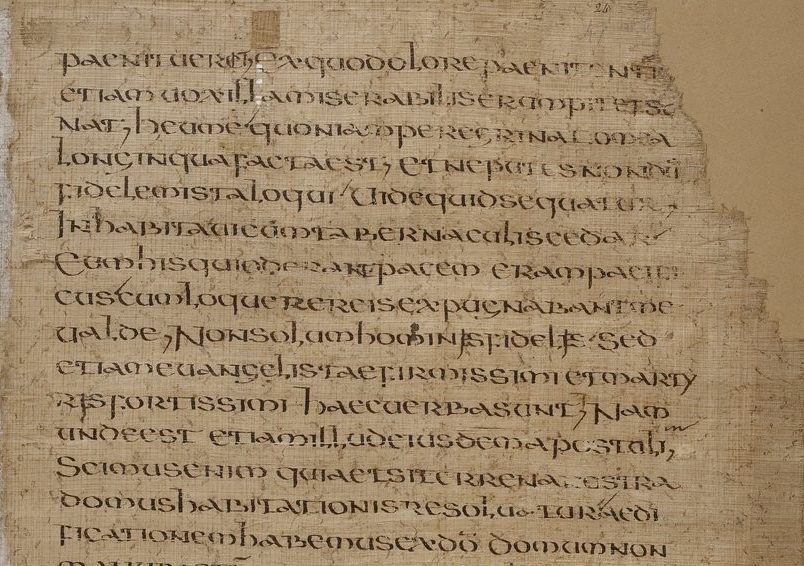 paeniuerch ex quo dolore paenit
etiam uox illa miserabilis erumpit et s
nat, heu me quoniam peregrina
longinqua facta est, et ne putes non dū
fidelem ista loqui uide quid sequatur,
Inhabitaui cum tabernaculis cedar
Cum his qui oderant pacem eram paci
cus cum loquerer eis expugnabant me
ualde, Non solum hominis fidelis Sed
etiam euangelistae firmissimi et marty
ris fortissimi haec uerba sunt, Nam
unde est et illud eiusdem apostoli,
Scimus enim quia etsi terrena estra
domus habitationis resoluatur aedi
ficationem habemus ex dō domum non